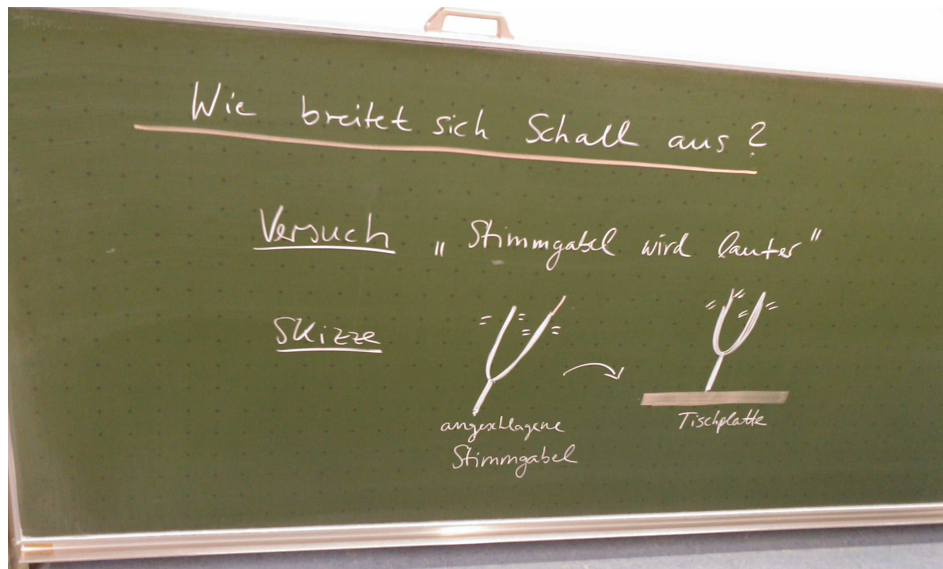 Wie breitet sich Schall aus?
Versuch „Stimmgabel wird lauter"
Skizze
angeschlagene
Stimmgabel
Tischplatte